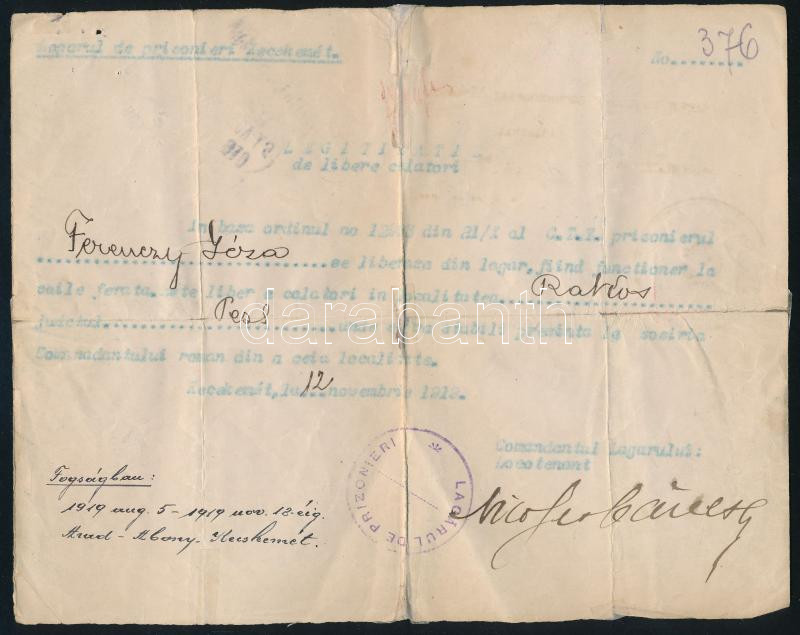 Lagarul de prisonieri Kecskemét.
No........ 376
LEGITIMATI
de libere calatori
In baza ordinul no din 21/X al C.T.Z. prisonierul
Ferenczy Józsa
se libereaza din lagar, fiind functioner la
caile ferata. Este liber a calatori in localitatea Rakos
judciul Pest unde se va stabili prezinta la sosiria
Comandantului roman din a ceia localitate.
Kecskemét, la 12 novembrie 1919.
Comandantul Lagarului:
Locotenent
LAGĂRUL DE PRIZONIERI
Fogságban:
1919 aug. 5 - 1919 nov. 12-éig.
Arad - Abony - Kecskemét.
darabanth